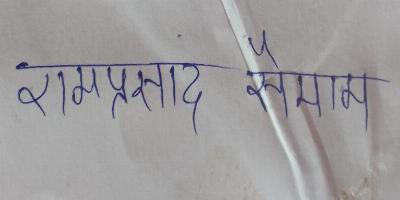 रामप्रसाद सेमाम